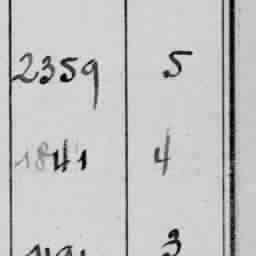 2359 5
1841 4
3